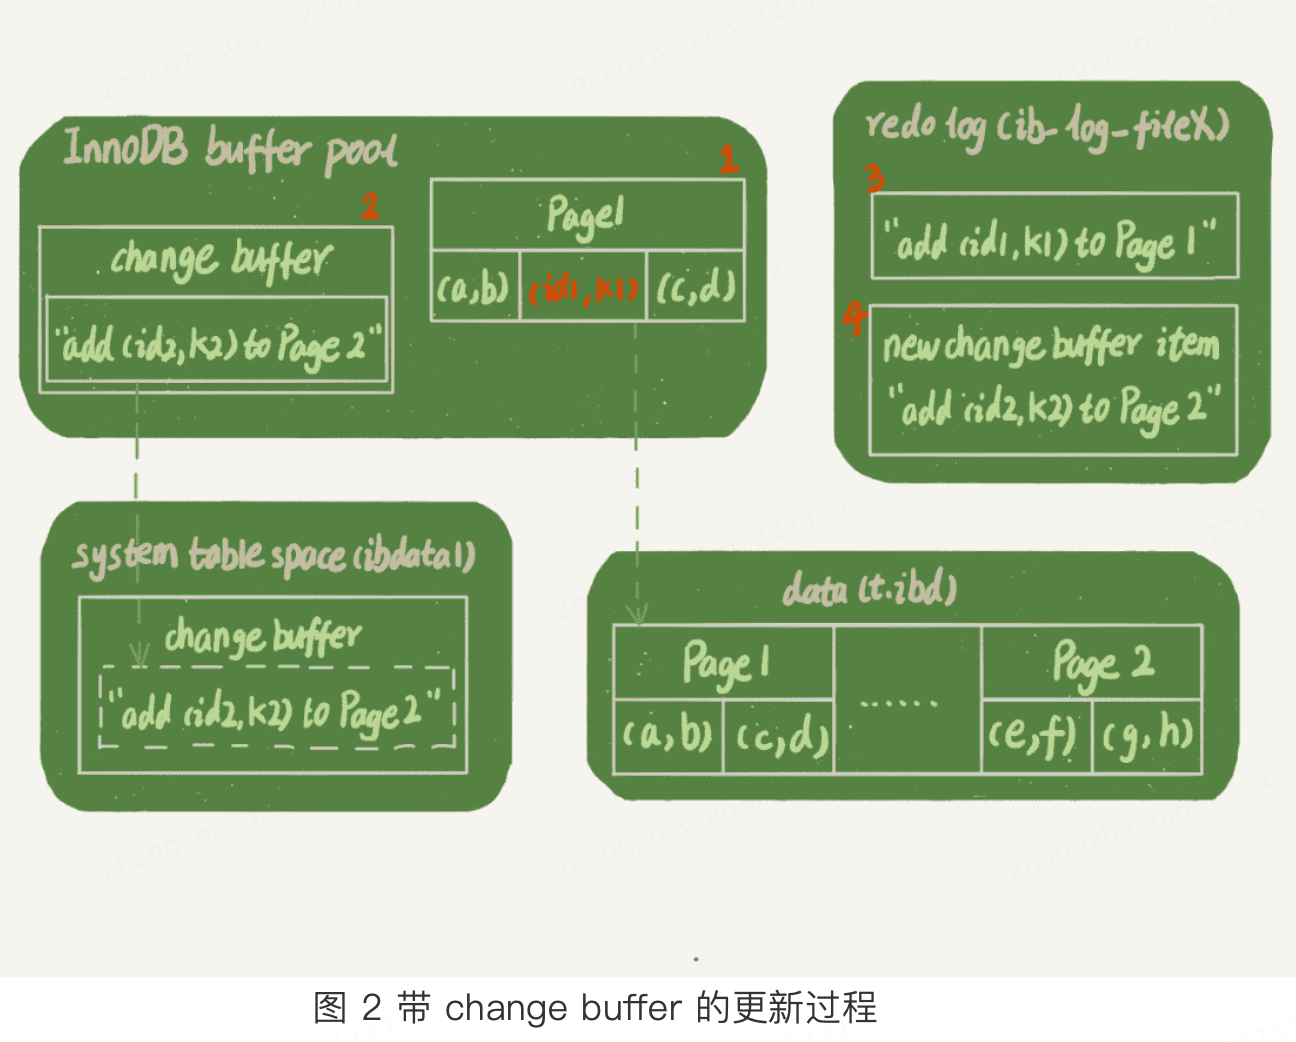 InnoDB buffer pool
2
change buffer
"add (id2,k2) to Page 2"
1
Page1
(a,b) (id1,k1) (c,d)
redo log (ib-log-fileX)
3
"add (id1,k1) to Page 1"
4
new change buffer item
"add (id2,k2) to Page 2"
system table space (ibdata1)
change buffer
"add (id2,k2) to Page2"
data (t.ibd)
Page 1 ...... Page 2
(a,b) (c,d) (e,f) (g,h)
图 2 带 change buffer 的更新过程